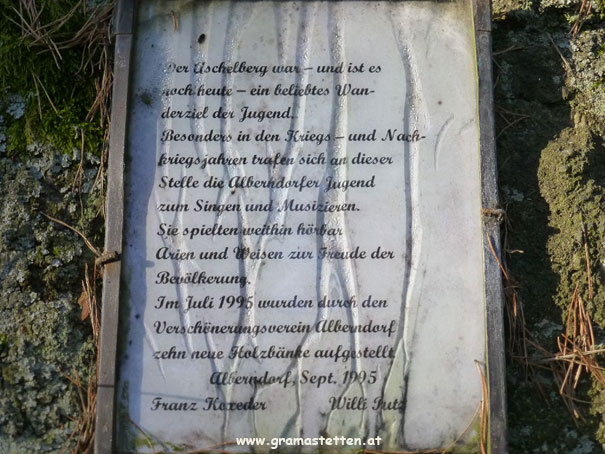 Der Aschelberg war – und ist es
noch heute – ein beliebtes Wan-
derziel der Jugend.
Besonders in den Kriegs – und Nach-
kriegsjahren trafen sich an dieser
Stelle die Alberndorfer Jugend
zum Singen und Musizieren.
Sie spielten weithin hörbar
Arien und Weisen zur Freude der
Bevölkerung.
Im Juli 1995 wurden durch den
Verschönerungsverein Alberndorf
zehn neue Holzbänke aufgestellt.
Alberndorf, Sept. 1995
Franz Willi
www.gramastetten.at